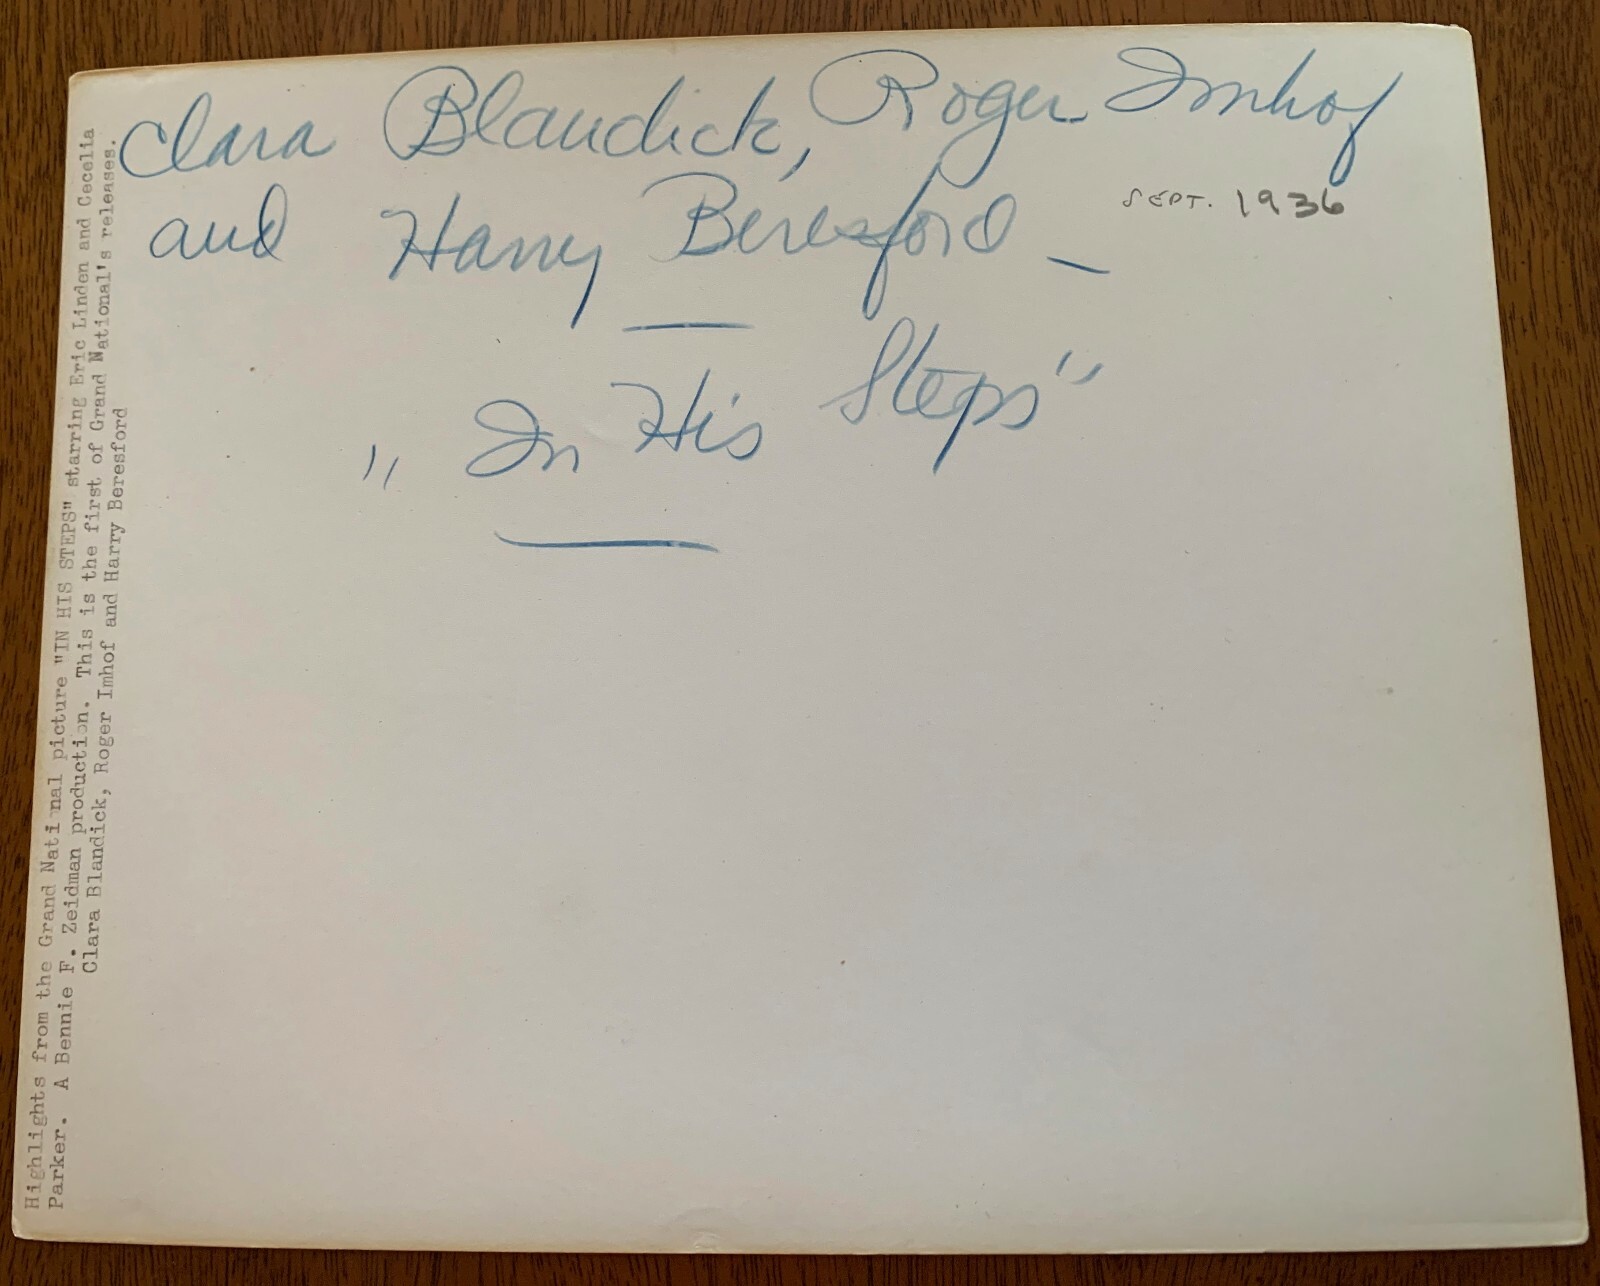 Clara Blandick, Roger Imhof
and Harry Beresford —
SEPT. 1936
"In His Steps"
Highlights from the Grand National picture "IN HIS STEPS" starring Eric Linden and Cecelia
Parker. A Bennie F. Zeidman production. This is the first of Grand National's releases.
Clara Blandick, Roger Imhof and Harry Beresford